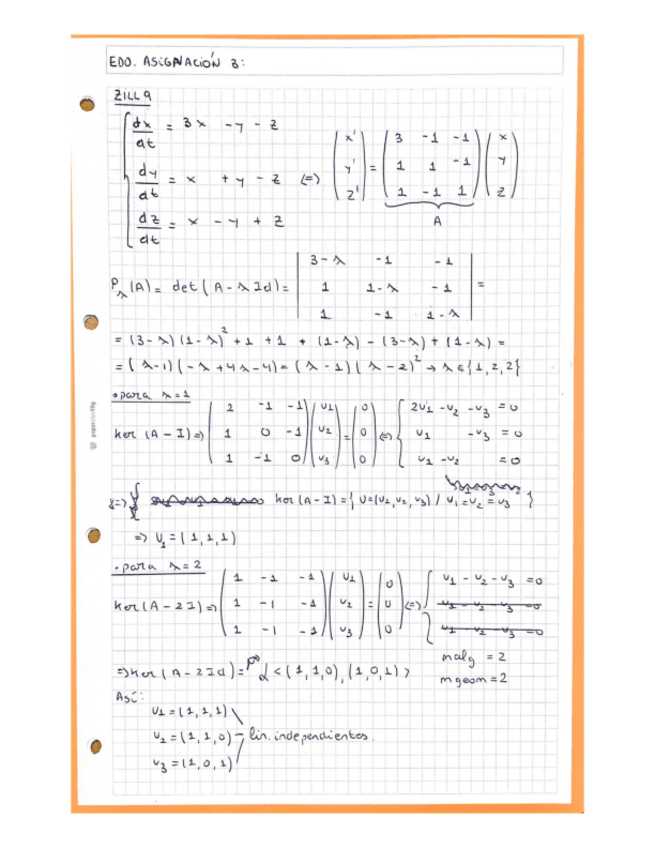 EDO. ASIGNACIÓN 3:
ZILL 9
dx/dt = 3x - y - z
dy/dt = x + y - z
dz/dt = x - y + z
(=) (x' y' z') = (3 -1 -1 / 1 1 -1 / 1 -1 1) (x y z)
A
P_λ(A) = det(A - λId) = |3-λ -1 -1 / 1 1-λ -1 / 1 -1 1-λ| =
= (3-λ)(1-λ)² + 1 + 1 + (1-λ) - (3-λ) + (1-λ) =
= (λ-1)(-λ + 4λ - 4) = (λ-1)(λ-2)² → λ ∈ {1, 2, 2}
• para λ = 1
ker (A - I) => (2 -1 -1 / 1 0 -1 / 1 -1 0) (v1 v2 v3) = (0 0 0) (=)
2v1 - v2 - v3 = 0
v1 - v3 = 0
v1 - v2 = 0
ker (A - I) = { v = (v1, v2, v3) / v1 = v2 = v3 }
=> v1 = (1, 1, 1)
• para λ = 2
ker (A - 2I) => (1 -1 -1 / 1 -1 -1 / 1 -1 -1) (v1 v2 v3) = (0 0 0) (=)
v1 - v2 - v3 = 0
v1 - v2 - v3 = 0
v1 - v2 - v3 = 0
m alg = 2
m geom = 2
=> ker (A - 2Id) = < (1, 1, 0), (1, 0, 1) >
Así:
v1 = (1, 1, 1)
v2 = (1, 1, 0) lin. independientes.
v3 = (1, 0, 1)